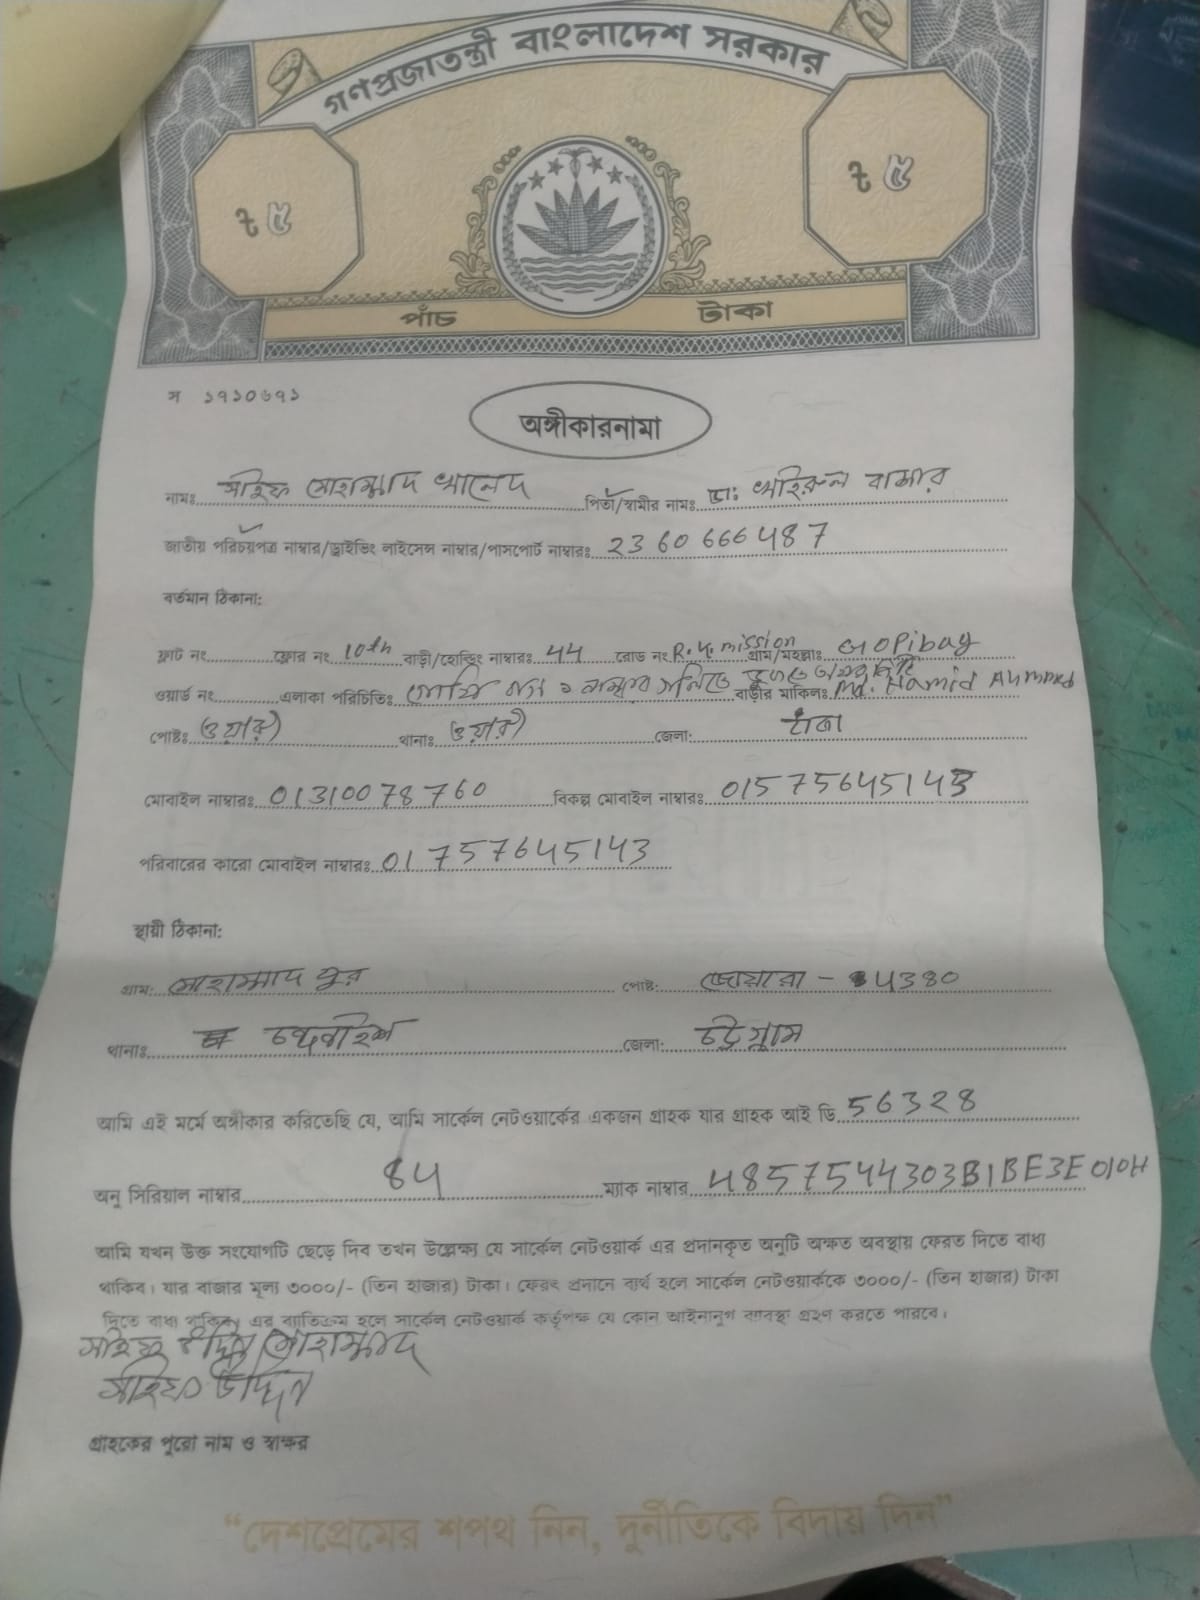 গণপ্রজাতন্ত্রী বাংলাদেশ সরকার
৳ ৫
৳ ৫
পাঁচ টাকা
স ১৭১০৬৭১
অঙ্গীকারনামা
নামঃ সাইফ মোহাম্মাদ খালেদ পিতা/স্বামীর নামঃ ডাঃ খাইরুল বাসার
জাতীয় পরিচয়পত্র নাম্বার/ড্রাইভিং লাইসেন্স নাম্বার/পাসপোর্ট নাম্বারঃ 2360666487
বর্তমান ঠিকানা:
ফ্লাট নং ফ্লোর নং 10th বাড়ী/হোল্ডিং নাম্বারঃ 44 রোড নং R.K. mission গ্রাম/মহল্লাঃ Gopibag
ওয়ার্ড নং এলাকা পরিচিতিঃ গোপিবাগ ১ নাম্বার গলিতে বাড়ীর মালিকঃ Md. Hamid Ahmned
পোষ্টঃ ওয়ারী থানাঃ ওয়ারী জেলা: ঢাকা
মোবাইল নাম্বারঃ 01310078760 বিকল্প মোবাইল নাম্বারঃ 01575645143
পরিবারের কারো মোবাইল নাম্বারঃ 01757645143
স্থায়ী ঠিকানা:
গ্রাম: মোহাম্মাদ পুর পোষ্ট: জোয়ারা - 4380
থানাঃ চন্দনাইশ জেলা: চট্টগ্রাম
আমি এই মর্মে অঙ্গীকার করিতেছি যে, আমি সার্কেল নেটওয়ার্কের একজন গ্রাহক যার গ্রাহক আই ডি 56328
অনু সিরিয়াল নাম্বার 84 ম্যাক নাম্বার 4857544303B1BE3E010H
আমি যখন উক্ত সংযোগটি ছেড়ে দিব তখন উল্লেক্ষ্য যে সার্কেল নেটওয়ার্ক এর প্রদানকৃত অনুটি অক্ষত অবস্থায় ফেরত দিতে বাধ্য
থাকিব। যার বাজার মূল্য ৩০০০/- (তিন হাজার) টাকা। ফেরৎ প্রদানে ব্যর্থ হলে সার্কেল নেটওয়ার্ককে ৩০০০/- (তিন হাজার) টাকা
দিতে বাধ্য থাকিব। এর ব্যতিক্রম হলে সার্কেল নেটওয়ার্ক কর্তৃপক্ষ যে কোন আইনানুগ ব্যবস্থা গ্রহণ করতে পারবে।
সাইফ উদ্দিন মোহাম্মাদ
সাইফ উদ্দিন
গ্রাহকের পুরো নাম ও স্বাক্ষর
“দেশপ্রেমের শপথ নিন, দুর্নীতিকে বিদায় দিন”